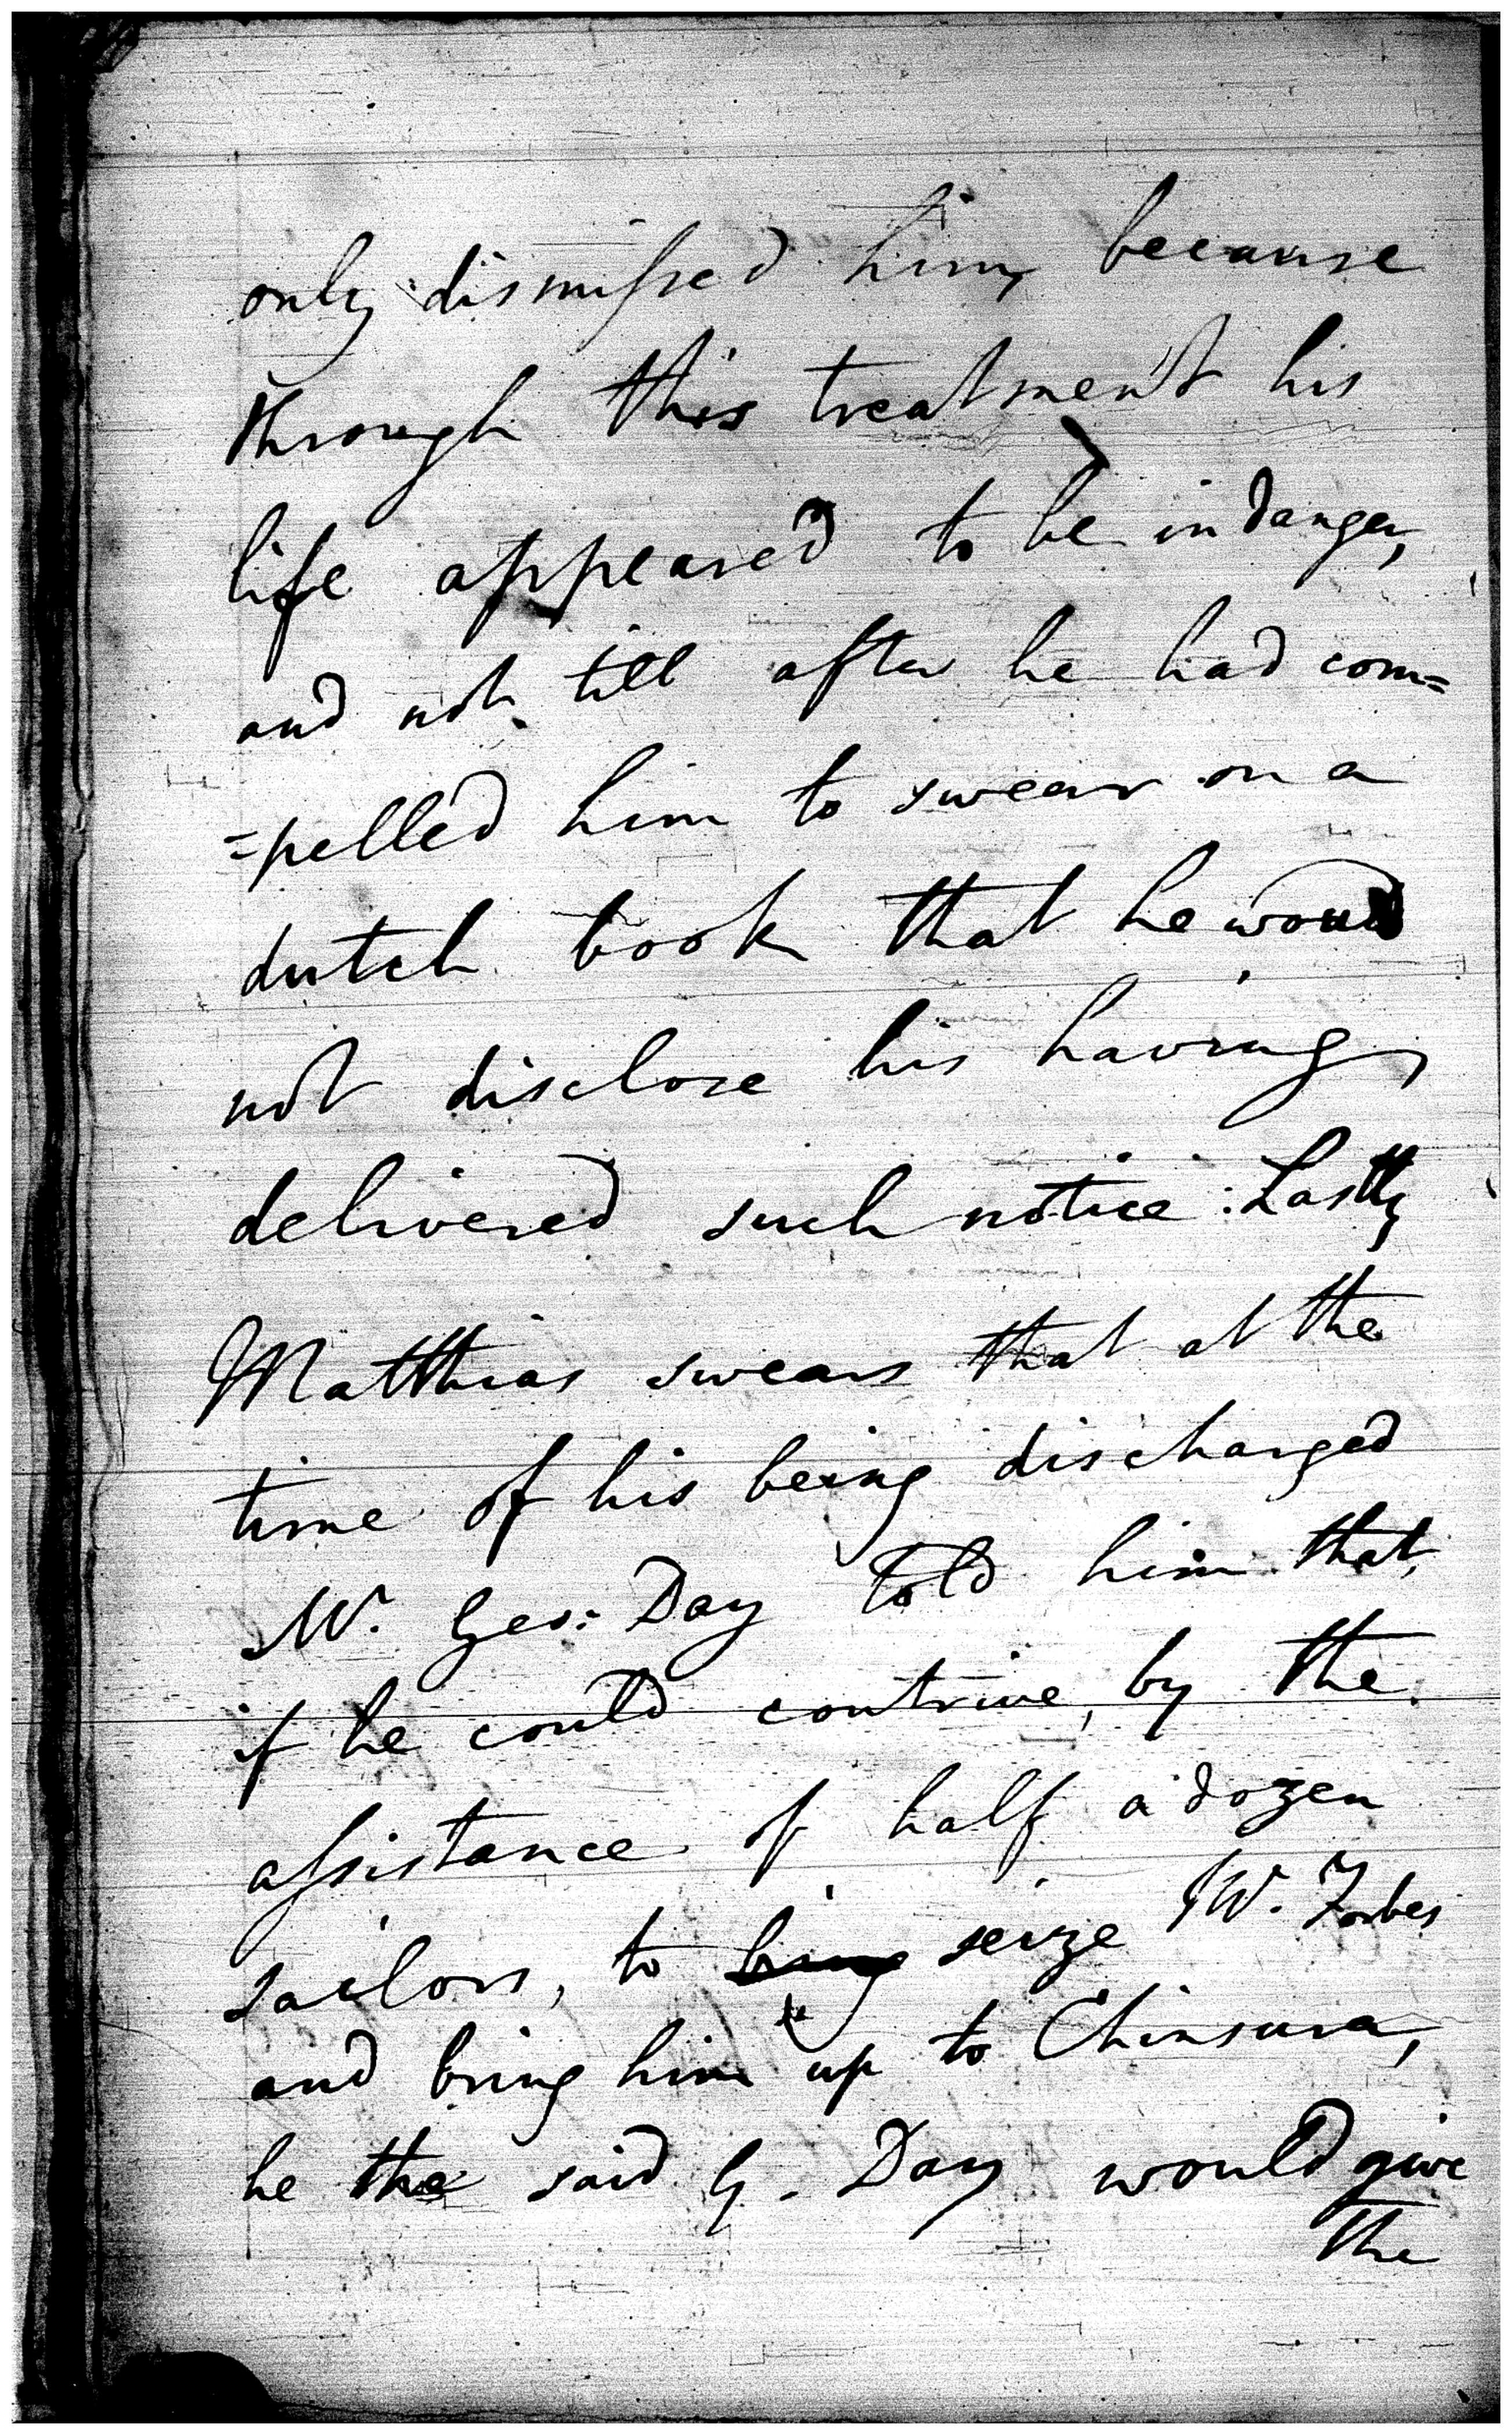 only dismissed him because
through this treatment his
life appeared to be in danger,
and not till after he had com=
=pelled him to swear on a
dutch book that he would
not disclose his having
delivered such notice: Lastly
Matthias swears that at the
time of his being discharged
Mr. Geo: Day told him that
if he could contrive, by the
assistance of half a dozen
sailors, to bring seize Mr. Forbes
and bring him up to Chinsura,
he the said G. Day would give
the